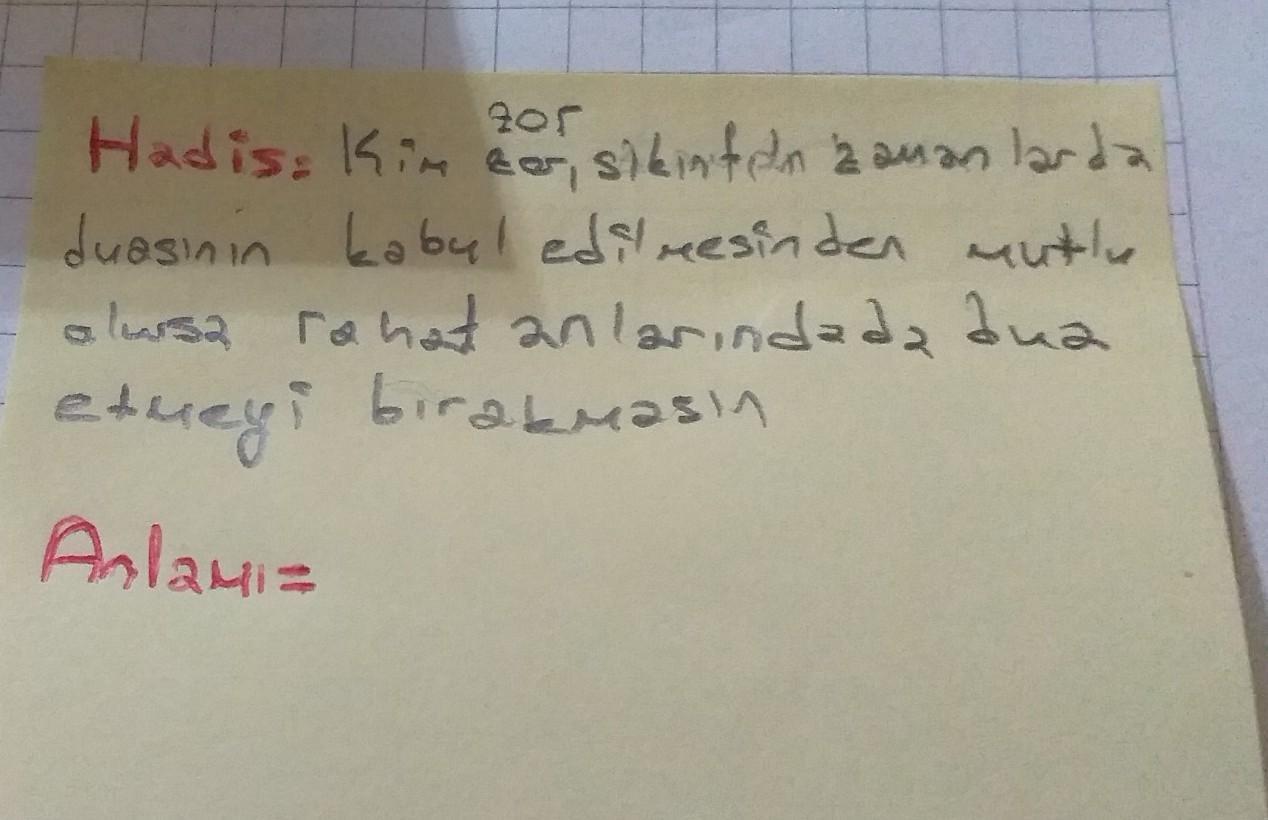 zor
Hadis: Kim zor, sıkıntılın zamanlarda
duasının kabul edilmesinden mutlu
olursa rahat anlarındada dua
etmeyi bırakmasın
Anlamı=